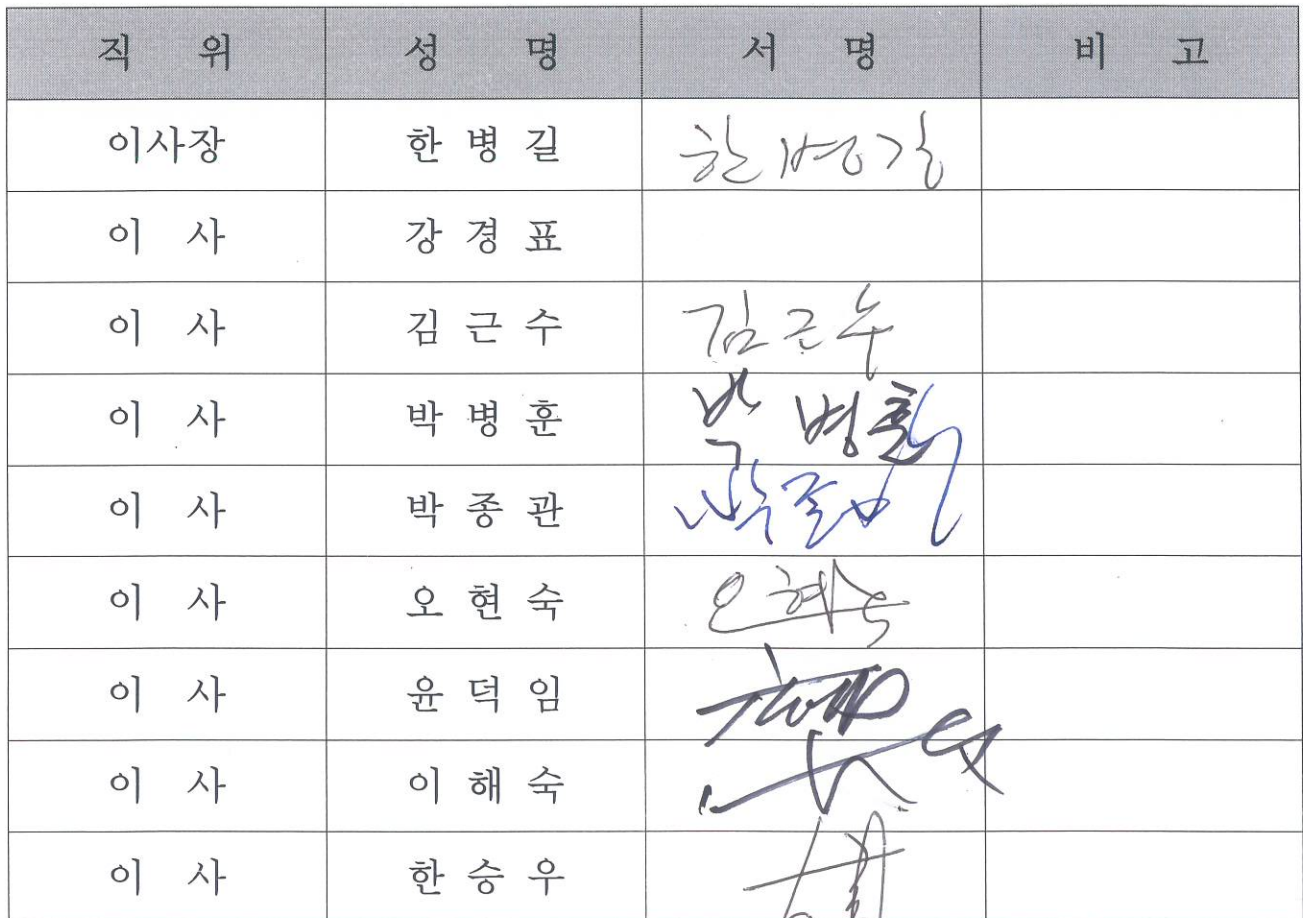 직 위 성 명 서 명 비 고
이사장 한 병 길 한병길
이 사 강 경 표
이 사 김 근 수 김근수
이 사 박 병 훈 박병훈
이 사 박 종 관 박종관
이 사 오 현 숙 오현숙
이 사 윤 덕 임
이 사 이 해 숙
이 사 한 승 우